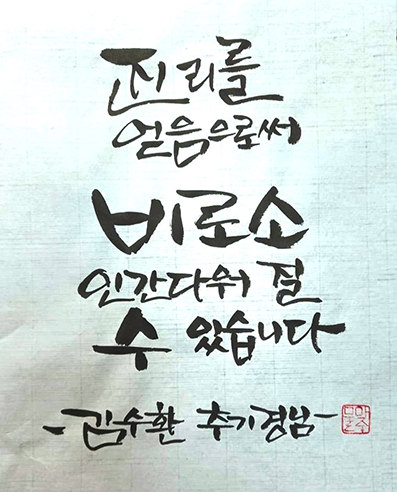 진리를
얻음으로써
비로소
인간다워 질
수 있습니다
-김수환 추기경님-